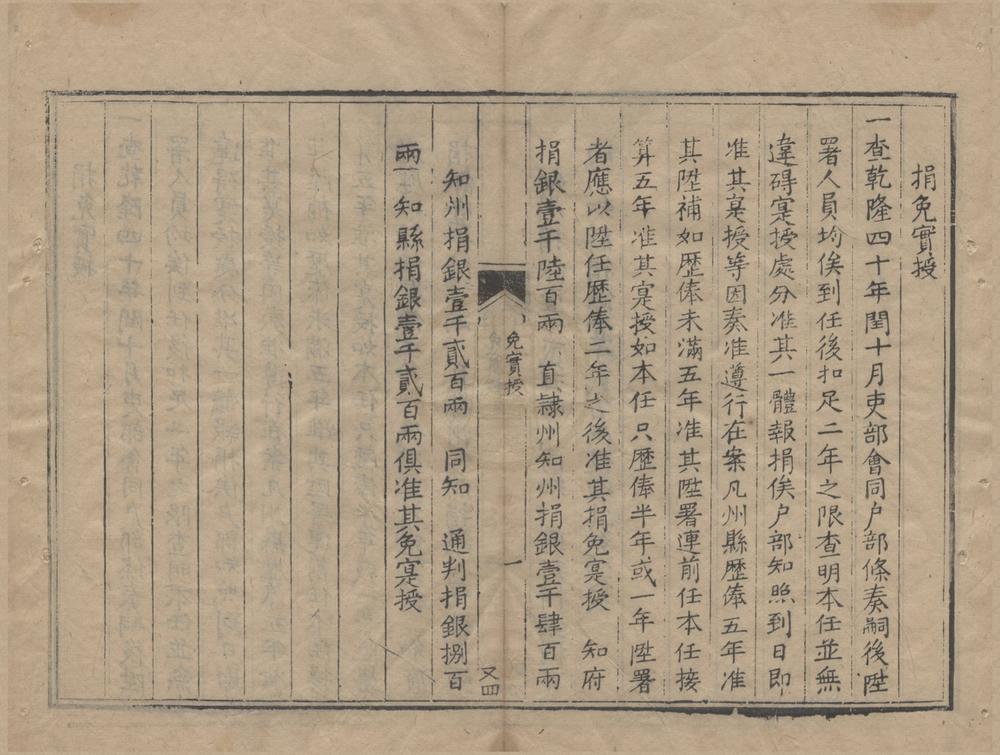 捐免實授
一查乾隆四十年閏十月吏部會同户部條奏嗣後陞
署人員均俟到任後扣足二年之限查明本任並無
違碍寔授處分准其一體報捐俟户部知照到日即
准其寔授等因奏准遵行在案凡州縣歷俸五年准
其陞補如歷俸未滿五年准其陞署連前任本任接
算五年准其寔授如本任只歷俸半年或一年陞署
者應以陞任歷俸二年之後准其捐免寔授　知府
捐銀壹千陸百兩　直隸州知州捐銀壹千肆百兩
免實授　一　又四
知州捐銀壹千貳百兩　同知　通判捐銀捌百
兩　知縣捐銀壹千貳百兩俱准其免寔授